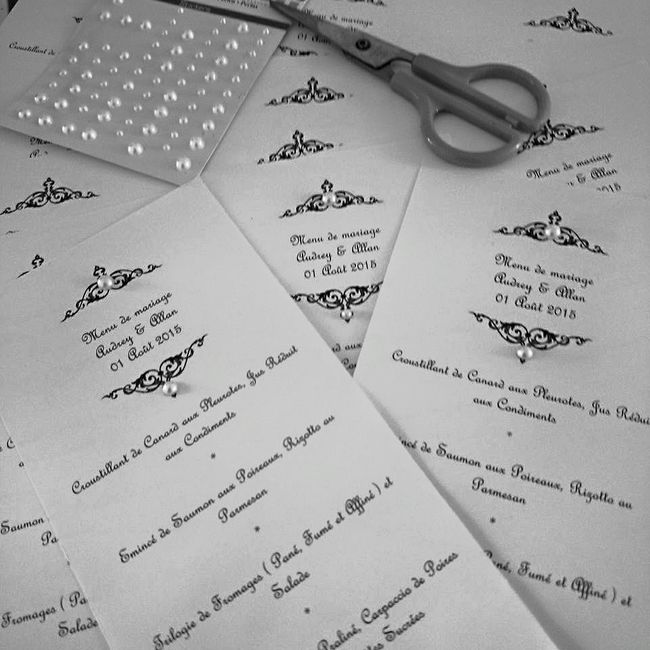 Menu de mariage
Audrey & Allan
01 Août 2015
Croustillant de Canard aux Pleurotes, Jus Réduit
aux Condiments
*
Emincé de Saumon aux Poireaux, Rizotto au
Parmesan
*
Trilogie de Fromages ( Pané, Fumé et Affiné ) et
Salade
*
Praliné, Carpaccio de Poires
Sucrées
Menu de mariage
Audrey & Allan
01 Août 2015
Menu de mariage
Audrey & Allan
01 Août 2015
Croustillant de Canard aux Pleurotes, Jus Rédui
aux Condiments
*
de Saumon aux Poireaux, Rizotto au
Parmesan
*
Fumé et Affiné ) et
Menu de mariage
& Allan
2015
Croustillant de
de Saumon
Fromages ( Pa
Salade